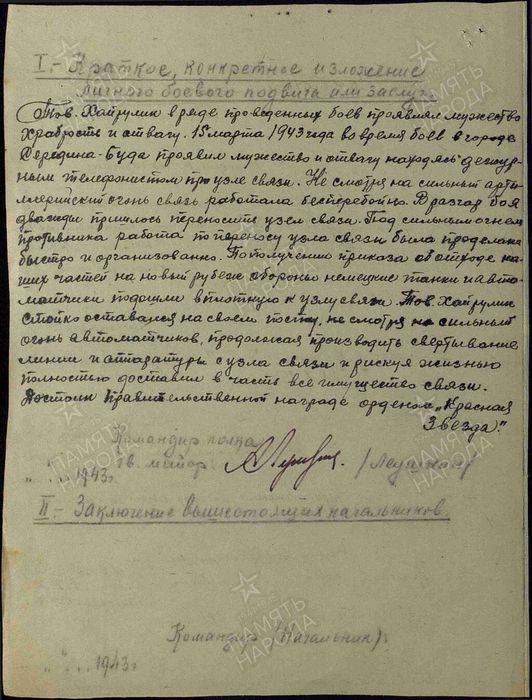 I.- Краткое, конкретное изложение
личного боевого подвига или заслуг.
Тов. Хайрулин в ряде проведенных боев проявлял мужество
храбрость и отвагу. 15 марта 1943 года во время боев в городе
Середина-Буда проявил мужество и отвагу находясь дежур-
ным телефонистом при узле связи. Не смотря на сильный арти-
ллерийский огонь связь работала бесперебойно. В разгар боя
дважды пришлось переносить узел связи. Под сильным огнем
противника работа по переносу узла связи была проделана
быстро и организованно. По получении приказа об отходе на-
ших частей на новый рубеж обороны немецкие танки и авто-
матчики подошли вплотную к узлу связи. Тов. Хайрулин
стойко оставался на своем посту, не смотря на сильный
огонь автоматчиков, продолжал производить свертывание
линии и аппаратуры с узла связи и рискуя жизнью
полностью доставил в часть все имущество связи.
Достоин правительственной награды орденом "Красная
Звезда."
Командир полка
гв. майор
" " ... 1943 г.
II.- Заключение вышестоящих начальников.
Командир (Начальник):
" " ... 1943 г
ПАМЯТЬ НАРОДА